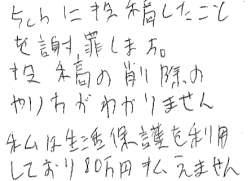 5chに投稿したこと
を謝罪します。
投稿の削除の
やり方がわかりません
私は生活保護を利用
しており80万円払えません